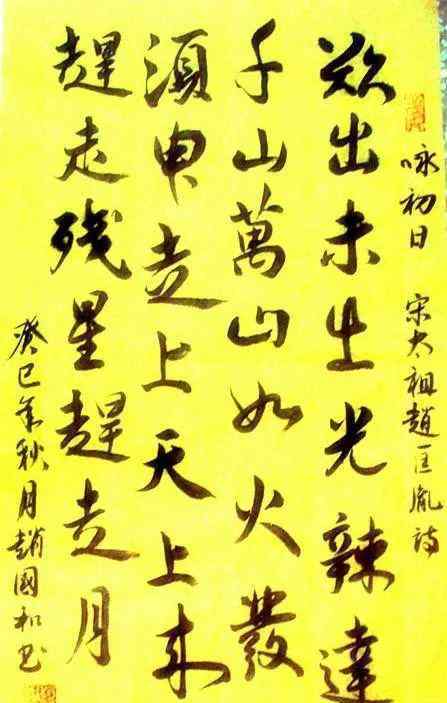 咏初日 宋太祖趙匡胤詩
欲出未出光辣達
千山萬山如火發
須臾走上天上来
趕走残星趕走月
癸巳年秋月趙國和书